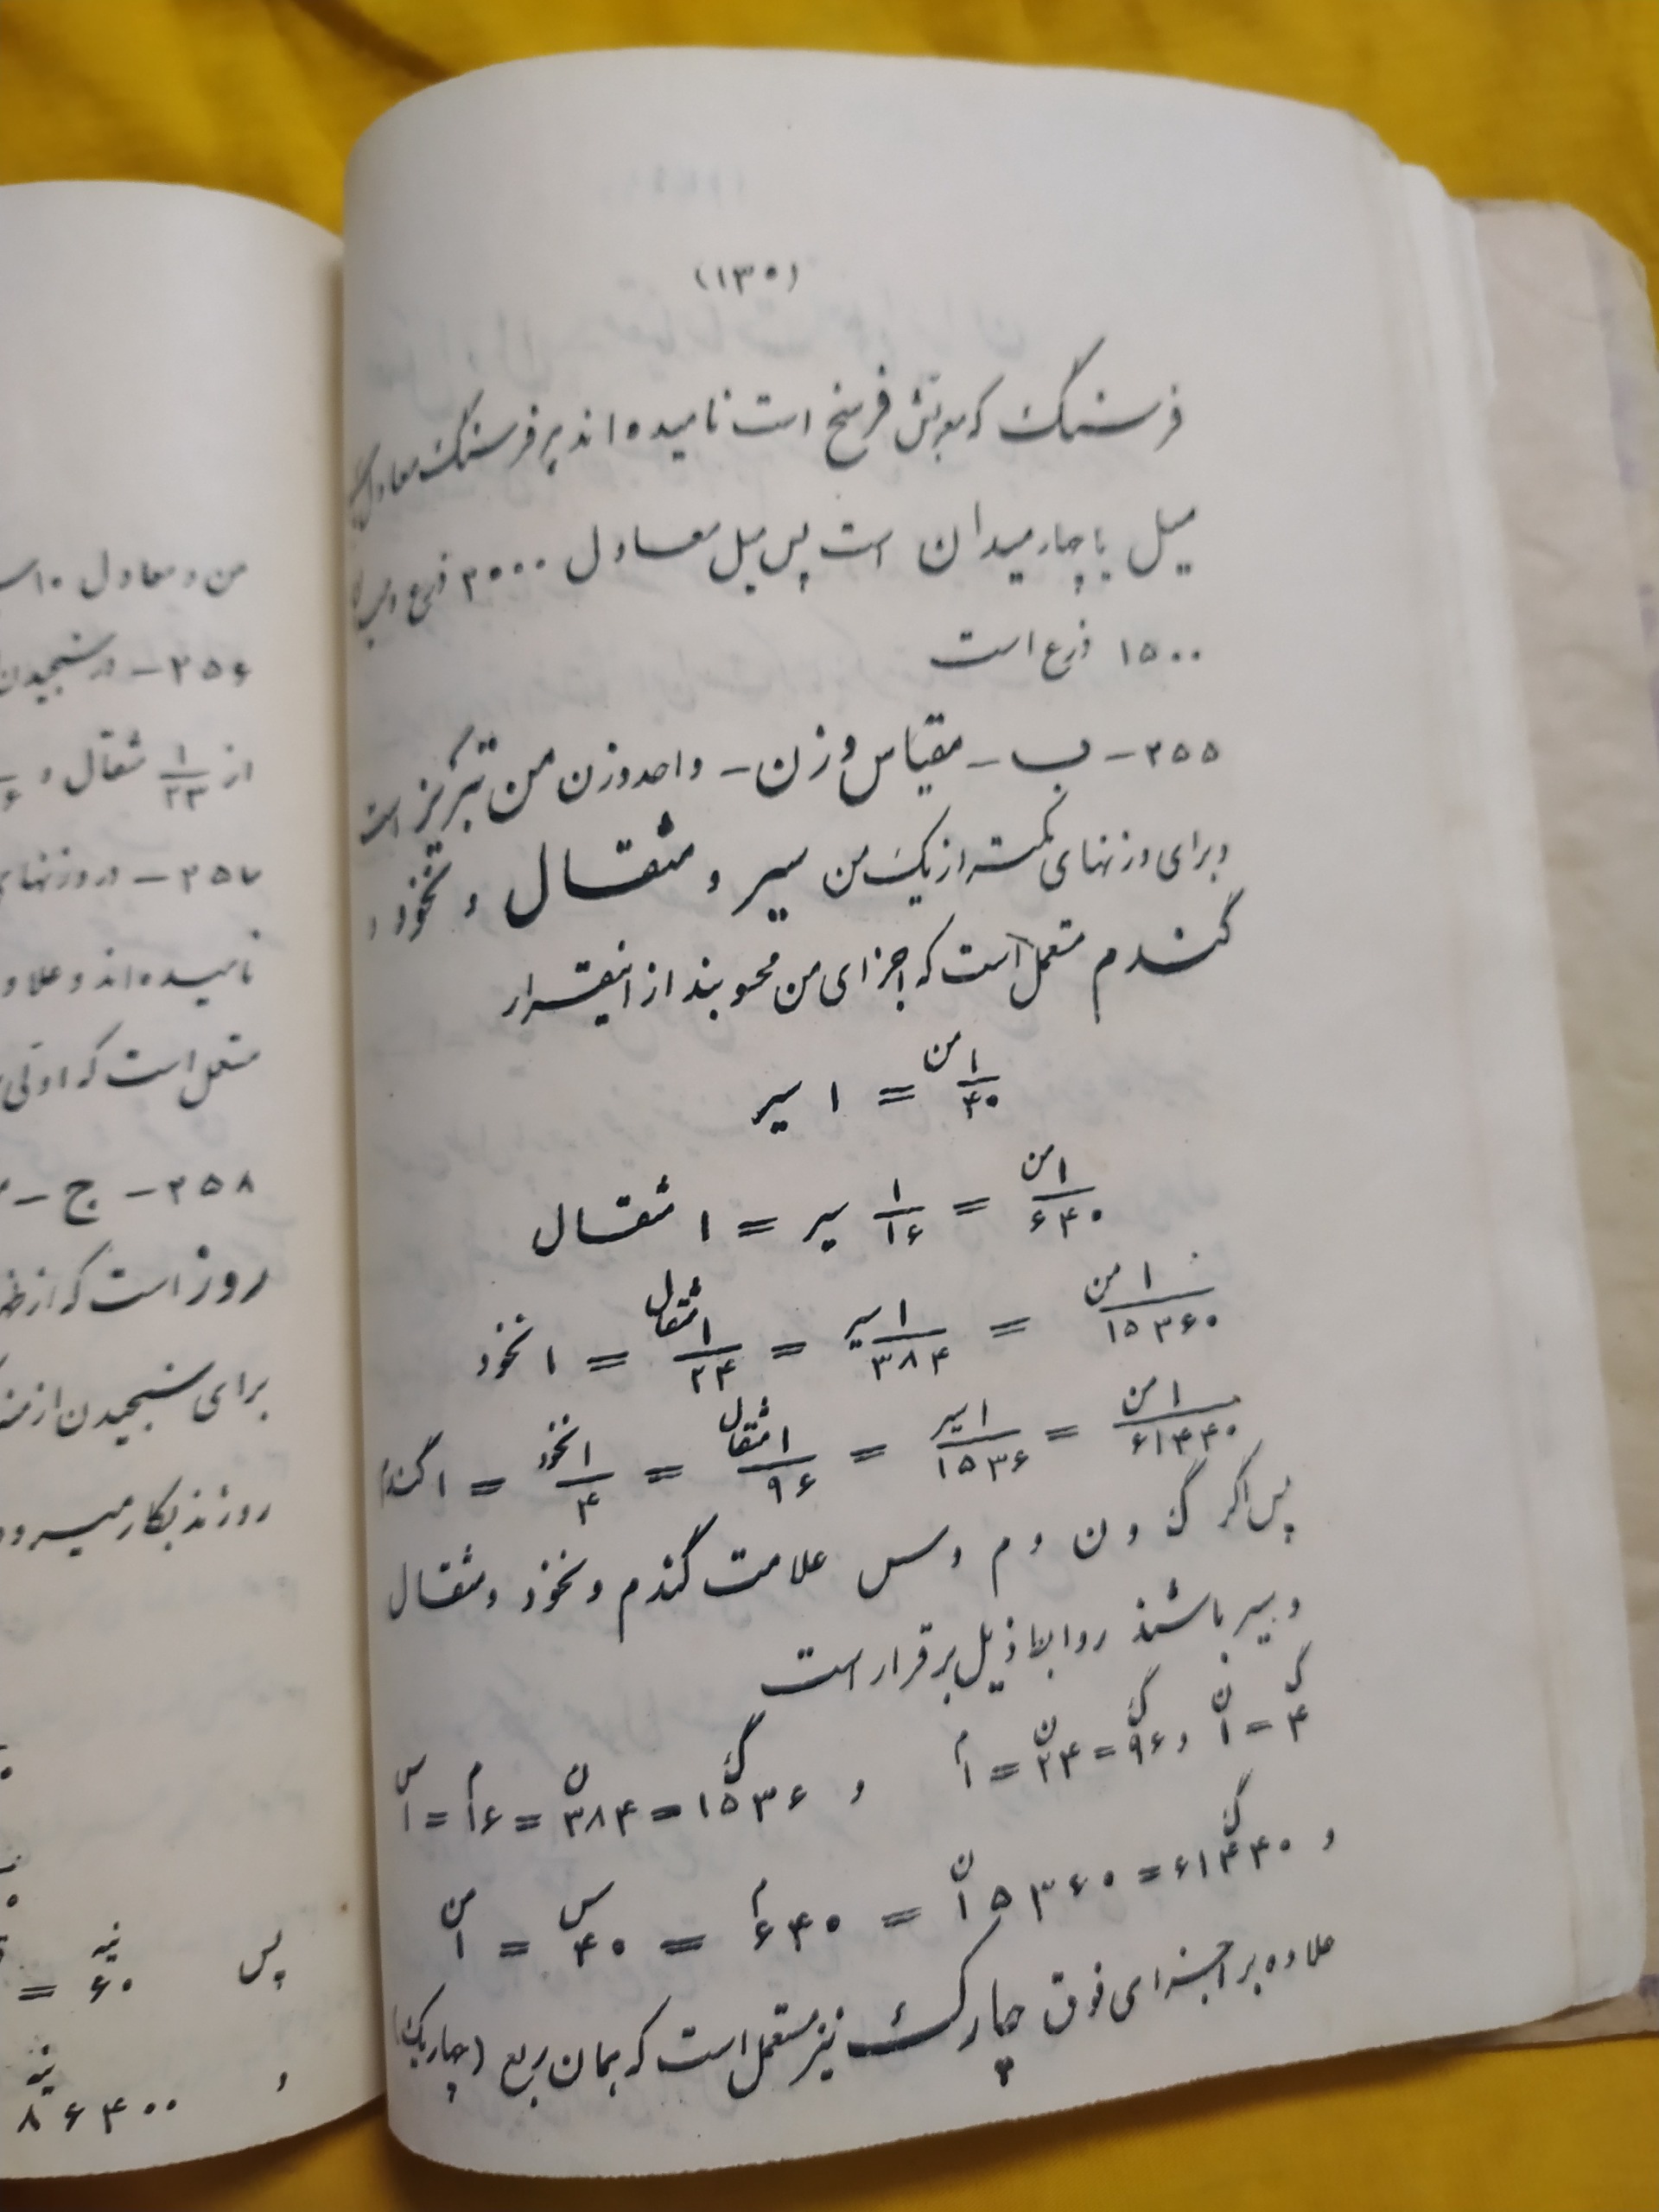 (۱۳۰)
فرسنگ که معربش فرسخ است نامیده اند پر فرسنگ معادل
میل یا چهار میدان است پس میل معادل ۳۰۰۰ ذرع و
۱۵۰۰ ذرع است
۲۵۵- ب - مقیاس وزن - واحد وزن من تبریز است
و برای وزنهای کمتر از یک من سیر و مثقال و نخود و
گندم مستعمل است که اجزای من محسوبند از اینقرار
۱/۴۰ من = ۱ سیر
۱/۶۴۰ من = ۱/۱۶ سیر = ۱ مثقال
۱/۱۵۳۶۰ من = ۱/۳۸۴ سیر = ۱/۲۴ مثقال = ۱ نخود
۱/۶۱۴۴۰ من = ۱/۱۵۳۶ سیر = ۱/۹۶ مثقال = ۱/۴ نخود = ۱ گندم
پس اگر گ و ن و م و س علامت گندم و نخود و مثقال
و سیر باشند روابط ذیل برقرار است
۴گ = ۱ن و ۹۶گ = ۲۴ن = ۱م و ۱۵۳۶گ = ۳۸۴ن = ۱۶م = ۱س
و ۶۱۴۴۰گ = ۱۵۳۶۰ن = ۶۴۰م = ۴۰س = ۱من
علاوه بر اجزای فوق چارک نیز مستعمل است که همان ربع (چاریک)
من و معادل ۱۰
۲۵۶- در سنجیدن
از ۱/۲۳ مثقال و
۲۵۷- در وزنهای
نامیده اند و علاو
مستعمل است که اولی
۲۵۸- ج -
روز است که از
برای سنجیدن از
روزند بکار میرود
پس ۶۰ نیه =
و ۸۶۴۰۰ نیه